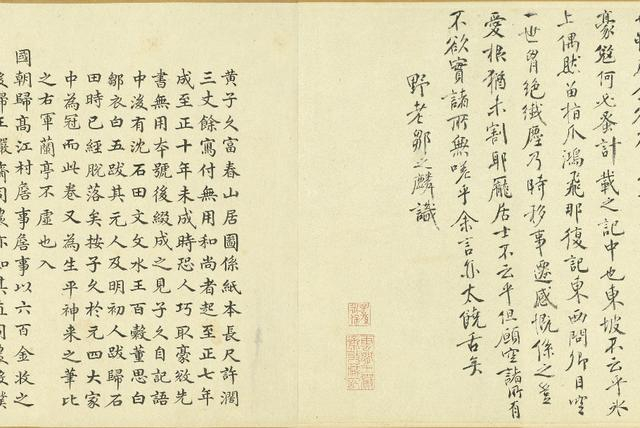 何必蚤計載之記中也東坡不云乎
上偶然留指爪鴻飛那復記東西問卿目空
一世胷絕纖塵乃時移事遷感慨係之豈
愛根猶未割耶龐居士不云乎但願空諸所有
不欲實諸所無嗟乎余言亦太饒舌矣
野老鄒之麟識
黃子久富春山居圖係紙本長尺許濶
三丈餘寫付無用和尚者起至正七年
成至正十年未成時恐人巧取豪敚先
書無用本號後綴成之見子久自記語
中後有沈石田文文水王百穀董思白
鄒衣白五跋其元人及明初人跋歸石
田時已經脫落矣按子久於元四大家
中為冠而此卷又為生平神来之筆比
之右軍蘭亭不虛也入
國朝歸高江村詹事詹事以六百金收之
後歸王儼齋司農亦如其直司農後